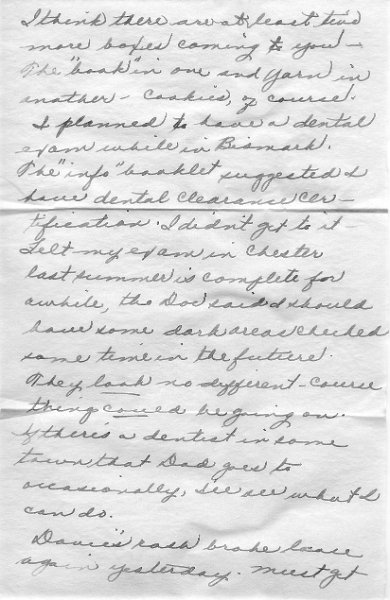 I think there are at least two
more boxes coming to you -
The "book" in one and yarn in
another - cookies, of course.
I planned to have a dental
exam while in Bismark.
The "info" booklet suggested I
have dental clearance cer-
tification. I didn't get to it -
Felt my exam in Chester
last summer is complete for
awhile, the Doc said I should
have some dark areas checked
some time in the future.
They look no different - course
thing could be going on.
If there's a dentist in some
town that Dad goes to
occasionally, I'll see what I
can do.
Davie's rash broke loose
again yesterday. Must get